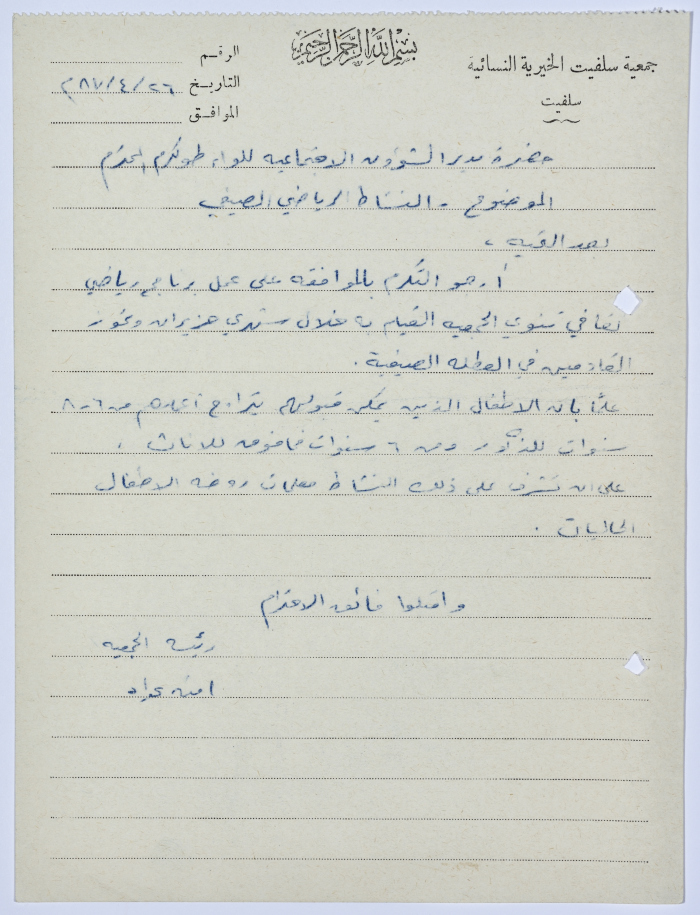 بسم الله الرحمن الرحيم
جمعية سلفيت الخيرية النسائية
سلفيت
الرقم
التاريخ ٢٦/٤/٨٧م
الموافق
حضرة مدير الشؤون الاجتماعيه للواء طولكرم المحترم
الموضوع - النشاط الرياضي الصيفي
بعد التحيه ،
أرجو التكرم بالموافقه على عمل برنامج رياضي
ثقافي تنوي الجمعيه القيام به خلال شهري حزيران وتموز
القادمين في العطله الصيفية .
علمًا بان الاطفال الذين يمكن قبولهم يتراوح أعمارهم من ٦-٨
سنوات للذكور ومن ٦ سنوات فما فوق للاناث .
على ان تشرف على ذلك النشاط معلمات روضه الاطفال
الحاليات .
واقبلوا فائق الاحترام
رئيسة الجمعيه
امنه